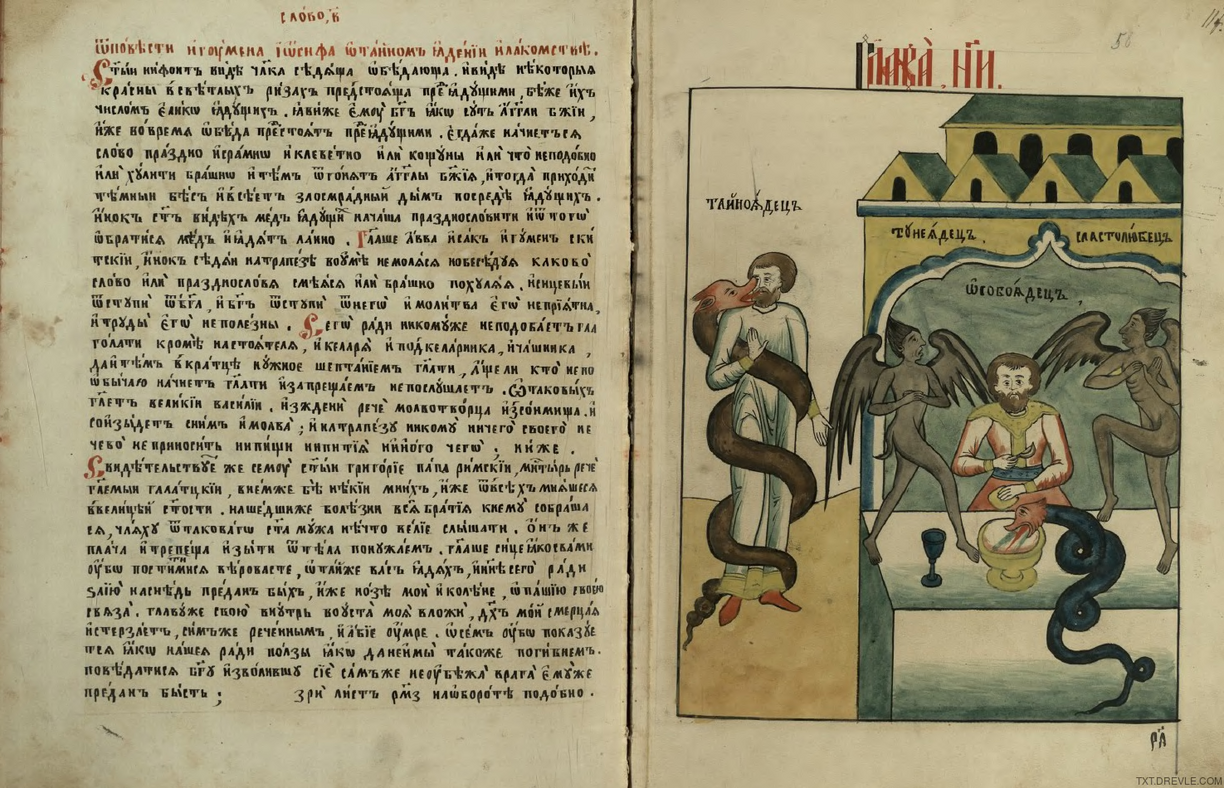 слово, в҃
Ѿповѣсти игоумена Іѡсифа ѡтайномъ ꙗденіи илакомствѣ.
Стый нифонтъ видѣ чл҃ка сѣдѧща ѡбѣдающа. ивидѣ нѣкоторыя
красны всвѣтлыхъ ризахъ предстоѧща пре ꙗдущими, бѣже ихъ
числомъ єликѡ ꙗдущихъ. ꙗвиже ємоу бг҃ъ ꙗкѡ суть аг҃гли бж҃їи,
иже вовремѧ ѡбѣда престоѧтъ преꙗдущими. єгдаже начнетъсѧ
слово праздно исрамно иклеветно или кощуны или что неподобно
или хулити брашно итѣмъ ѿгонѧтъ аг҃глы бж҃їѧ, итогда приходи
тѣмный бѣсъ ивсѣетъ злосмрадный дымъ посредѣ ꙗдущихъ.
инокъ ст҃ъ видѣхъ медъ ꙗдущи иначаша празднословити иѿ тогѡ
ѡбратисѧ медъ иꙗдѧтъ лаино. Гл҃аше авва исакъ игуменъ ски
тскїи, инокъ сѣдѧи натрапезѣ воумѣ немолѧсѧ нобесѣдуѧ каково
слово или празднословѧ смѣѧсѧ или брашно похулѧѧ, исицевый
ѿступи ѿбг҃а, ибг҃ъ ѿступи ѿнегѡ имолитва єгѡ непрїѧтна,
итруды єгѡ неполезны. Сегѡ ради никомуже неподобаетъ гла
голати кромѣ настоѧтелѧ, икеларѧ иподкеларника, ичашника,
даитѣмъ вкратцѣ нужное шептанїемъ гл҃ати, аще ли кто нено
ѡбычаю начнетъ гл҃ати изапрещаемъ непослушаетъ. ѿтаковыхъ
гл҃етъ великїи василїи. изждени рече молвотворца изсонмища. и
соизыдетъ снимъ имолва; инатрапезу никому ничего своего не
чево неприносить нипищи нипитїѧ ниного чегѡ, ниже.
Свидѣтельствуе же семоу ст҃ый григорїе папа римскїи,
гл҃емыи галатцкїи, внемже бѣ нѣкїи мнихъ, иже ѿвсѣхъ мнѧшесѧ
ввелицеи ст҃ости. нашедшиже болѣзни всѧ братїѧ кнему собраша
сѧ, чаѧху ѿтаковагѡ ст҃а мужа нѣчто велїе слышати. онъ же
плача итрепеща изыти ѿтѣла понужаемъ. гл҃аше сице ꙗкосвами
оубѡ постѧщимисѧ вѣровасте, ѡтаиже васъ ꙗдѧхъ, инынѣсего ради
ѕмїю наснѣдь преданъ быхъ, иже нозѣ мои иколѣне, ѡпашїю своею
свѧза. главуже свою внутрь воуста моѧ вложи, дх҃ъ мой смерцаѧ
истерзаетъ, симъже реченнымъ, иабїе оумре. ѡсемъ оубѡ показуе
тсѧ ꙗкѡ нашеѧ ради ползы ꙗкѡ данеимы такоже погибнемъ.
повѣдатисѧ бг҃у изволившу сїе самъже неоубѣжа врага ємуже
преданъ бысть; зри листъ рмз наѡборотѣ подобно.
глава, нп.
тайноѧдецъ
тунеѧдецъ.
сластолюбецъ
ѡсобоѧдецъ,
58
TXT.DREVLE.COM